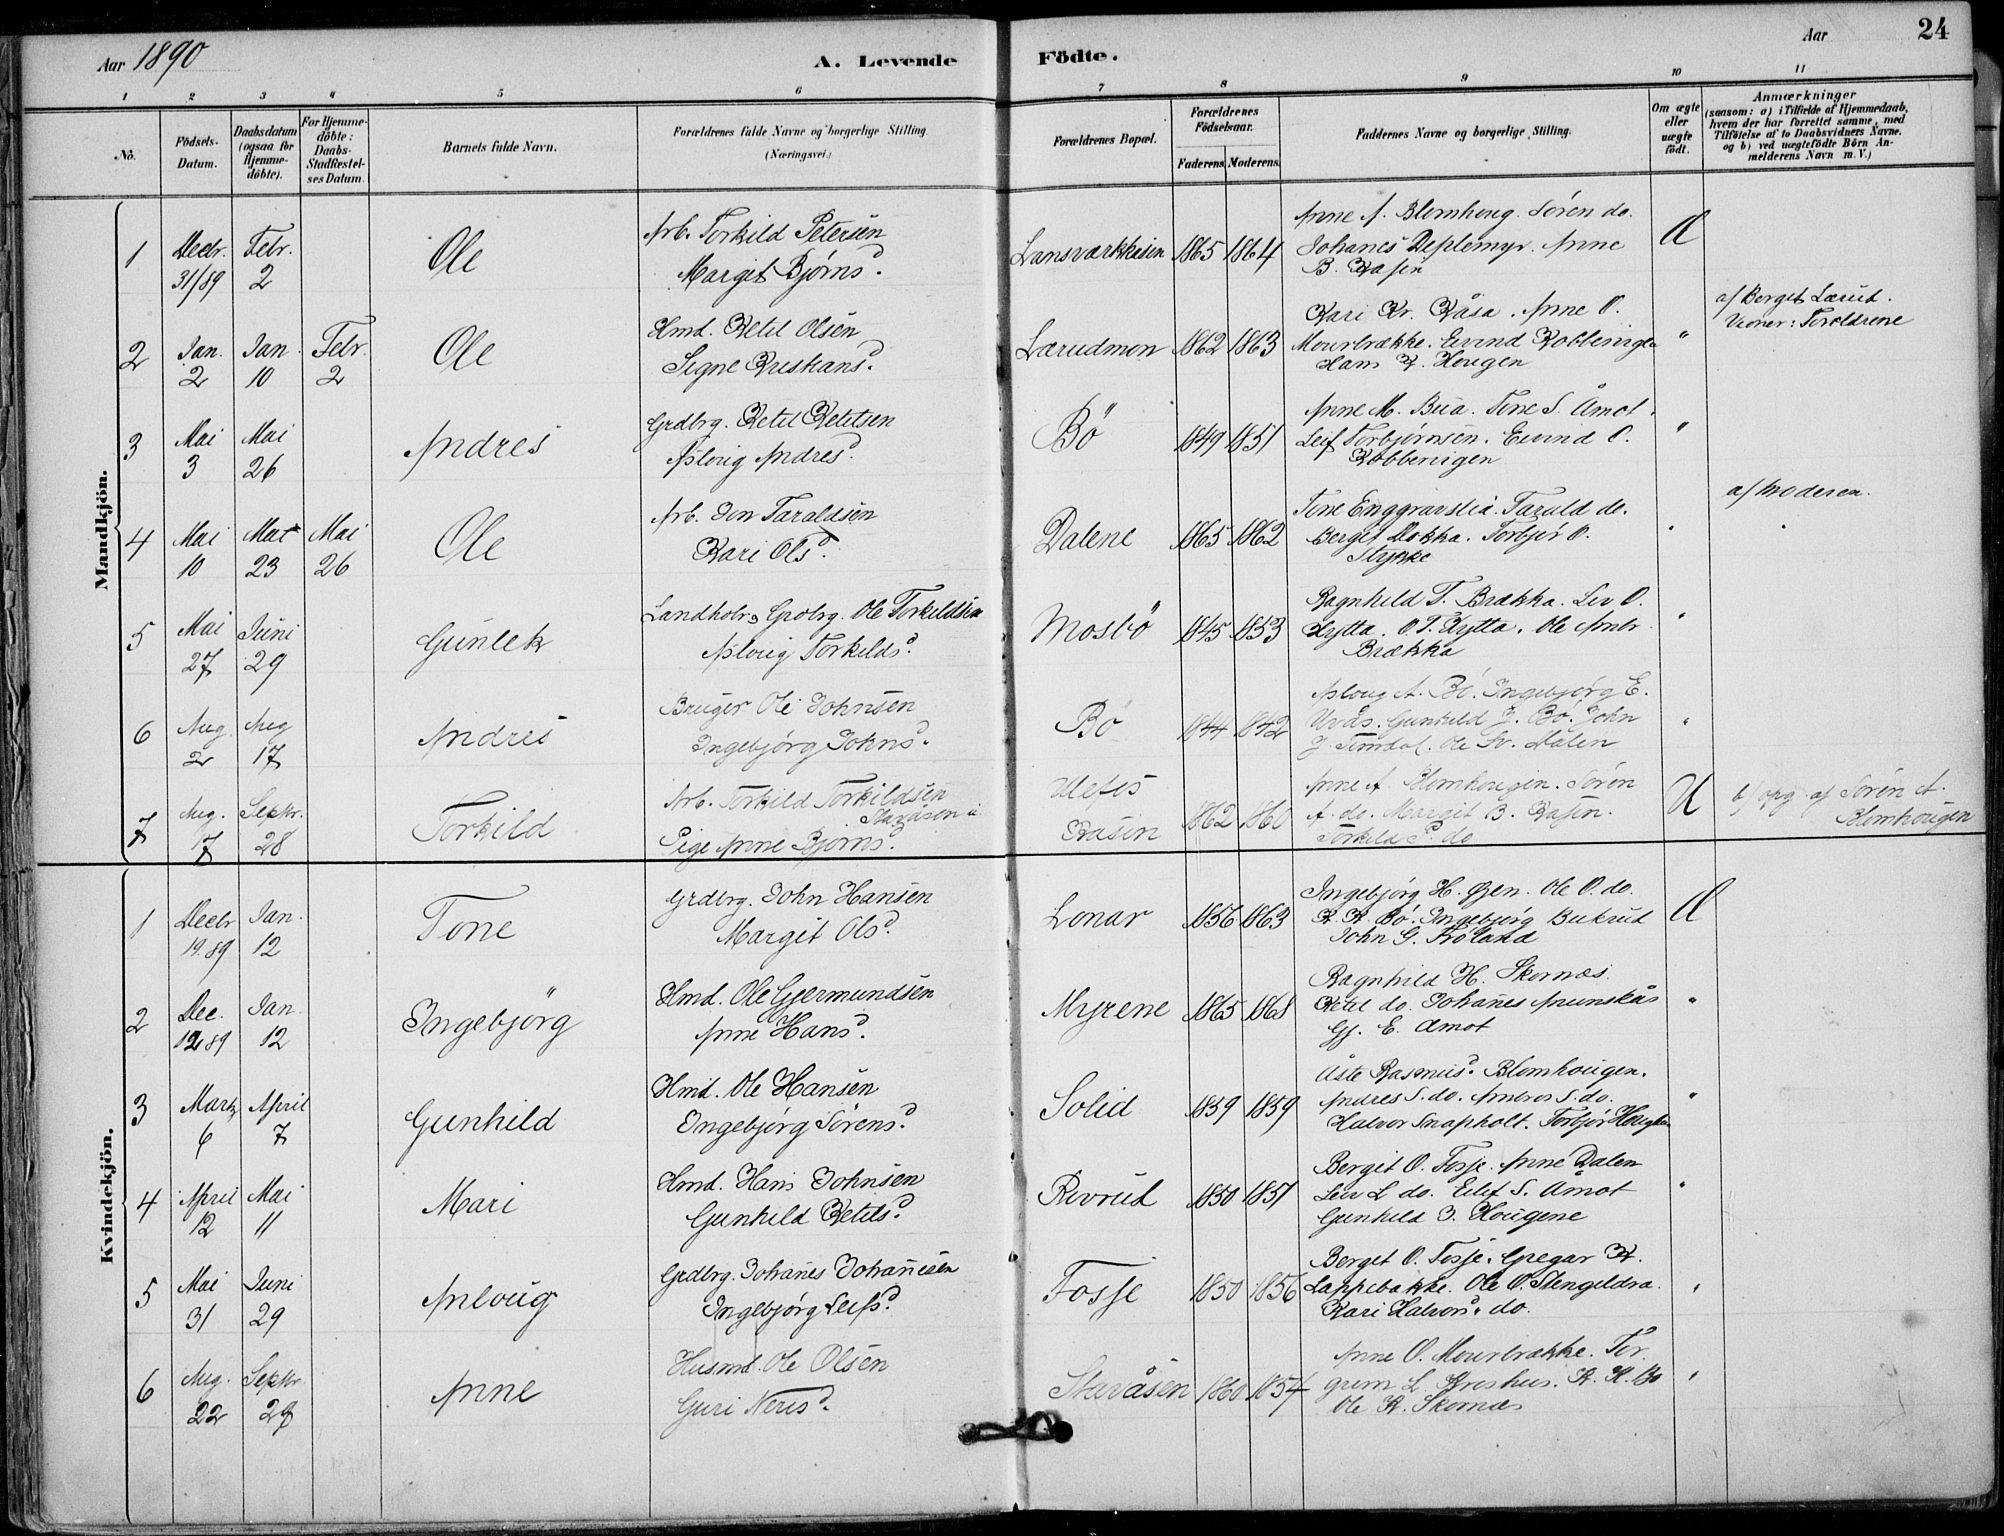 Aar 1890
A. Levende
Födte.
Aar
24
1 2 3 4 5 6 7 8 9 10 11
No.
Födsels-Datum.
Daabsdatum (ogsaa for Hjemme-döbte).
For Hjemme-döbte: Daabs-Stadfæstel-ses Datum.
Barnets fulde Navn.
Forældrenes fulde Navne og borgerlige Stilling.
(Næringsvei.)
Forældrenes Bopæl.
Forældrenes Födselsaar.
Faderens. Moderens.
Faddernes Navne og borgerlige Stilling.
Om ægte eller uægte födt.
Anmærkninger
(saasom: a) i Tilfælde af Hjemmedaab, hvem der har forrettet samme, med Tilföielse af to Daabsvidners Navne. og b) ved uægtefödte Börn An-melderens Navn m.V.)
Mandkjön.
1 Decbr. 31/89 Febr. 2 Ole
Arb. Torkild Petersen
Margit Bjørnsd.
1865 1864
Anne A. Blomhoug. Søren do.
Johanes Deplemyr. Anne
B. Rasen
2 Jan. 2 Jan. 10 Febr. 2 Ole
Hmd. Ketil Olsen
Signe Kristians d.
Lærudmon 1862 1863
Kari Kr. Kåsa. Anne O.
Mourbrække. Eivind Kobbervigen
Hans K. Hougen
"
af Berget Lærud.
Vidner: Forældrene
3 Mai 3 Mai 26 Andres
Grdbrg. Ketil Ketilsen
Asloug Andresd.
Bö 1849 1851
Anne M. Bua. Tone S. Åmot.
Leif Torbjørnsen. Eivind O.
Kobbervigen
"
4 Mai 10 Mai 23 Mai 26 Ole
Arb. Jon Taraldsen
Kari Olsd.
Dalene 1865 1862
Tone Enggravslia. Tarald do.
Berget Dokka. Torbjør O.
Stykke
"
af Moderen.
5 Mai 27 Juni 29 Gunlek
Ole Torkildsen
Asloug Torkildsd.
Mosbö 1845 1853
Ragnhild T. Brække. Lev O.
Hytta. O. T. Hytta. Ole Ambr.
Brækka
"
6 Aug. 2 Aug. 17 Andres
Bruger Ole Johnsen
Ingebjørg Johnsd.
Bö 1844 1842
Asloug A. Bö. Ingebjørg E.
Uvås. Gunhild J. Bö. John
J. Timdal. Ole Sv. Dalen
"
7 Aug. 17 Septbr. 28 Torkild
Arb. Torkild Torkildsen
Pige Anne Bjørnsd.
Ulefos
Rasen 1862 1860
Anne A Blomhougen. Søren
A. do. Margit B. Rasen.
Torkild P. do
U
b/ opg. af Søren A.
Blomhougen
Kvindekjön.
1 Decbr 19.89 Jan. 12 Tone
Grdbrg. John Hansen
Margit Olsd.
Lonar 1856 1863
Ingebjørg H. Øen. Ole O. do.
K. K. Bö. Ingebjørg Bukrud
John G. Frøland
2 Dec. 12/89 Jan. 12 Ingebjörg
Hmd. Ole Gjermundsen
Anne Hansd.
Myrene 1865 1868
Ragnhild H. Skornæs.
Ketil do. Johanes Aunskås
Gj. E. Amot
"
3 Marts 6 April 7 Gunhild
Hmd. Ole Hansen
Ingebjørg Sørensd.
Solid 1859 1859
Åste Rasmusd. Blomhougen.
Andres S. do. Ambros S. do.
Halvor Snapholt. Torbjør
"
4 April 12 Mai 11 Mari
Hmd. Hans Johnsen
Gunhild Ketilsd.
Revrud 1850 1857
Bergit O. Fosje. Anne Dalen
Leiv L do. Eilef S. Åmot
Gunhild J. Hougene
"
5 Mai 31 Juni 29 Anloug
Grdbrg. Johanes Johannesen
Ingebjørg Leifsd.
Fosje 1850 1856
Berget O. Fosje. Gregar K.
Lappebakke. Ole O. Stengeldra.
Kari Halvorsd. do.
"
6 Aug. 22 Septbr. Anne
Husmd. Ole Olsen
Guri Nerisd.
Stavåsen 1860 1854
Anne O. Mourbrække. Tor
grim L. Kreshus. K. K. Bö
Ole K. Skornæs
"